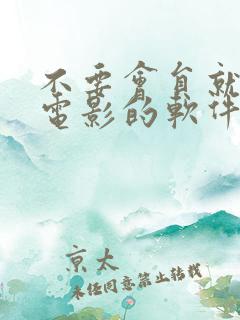 不要會員就
電影的軟件
京太
未經同意禁止轉載